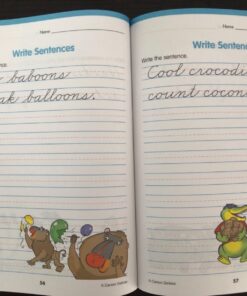 Name
Write Sentences
baboons
balloons.
56
© Carson-Dellosa
Name
Write Sentenc
Write the sentence.
Cool crocodi
count cocon
© Carson-Dellosa
57